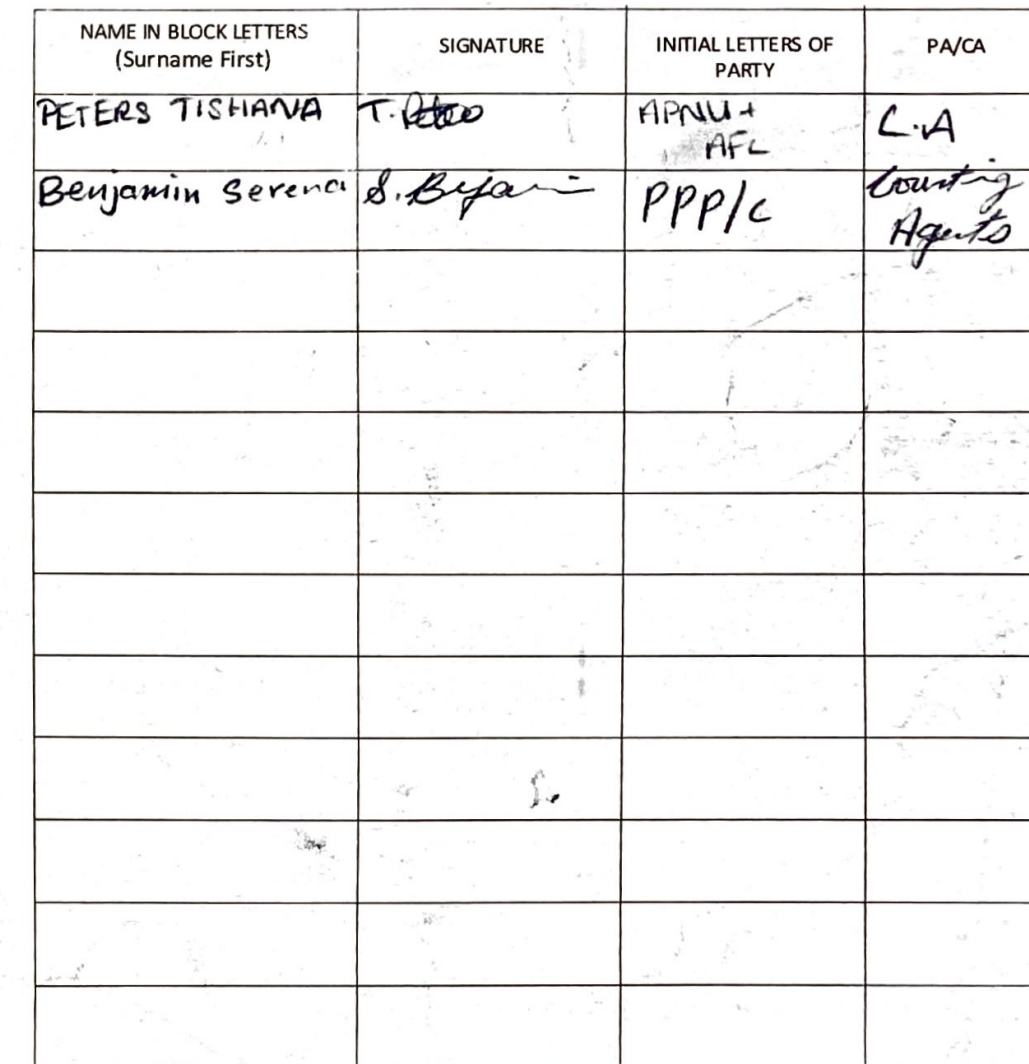 NAME IN BLOCK LETTERS
(Surname First)
SIGNATURE
INITIAL LETTERS OF
PARTY
PA/CA
PETERS TISHANA
T. Peters
APNU+
AFC
C.A
Benjamin Serena
S. Benjamin
PPP/C
Counting
Agents